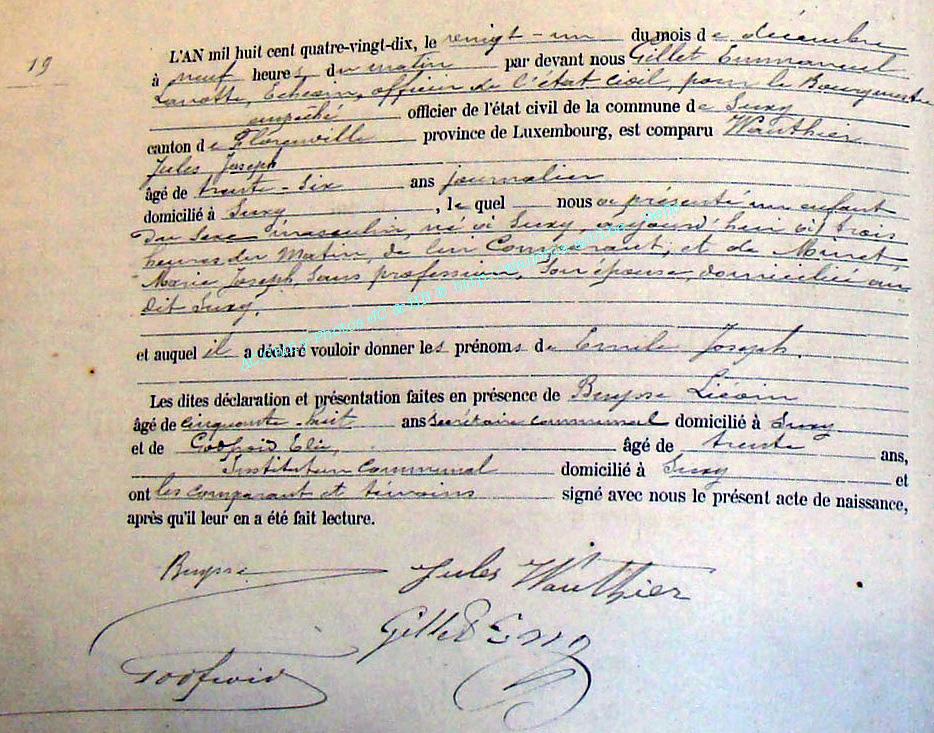 19
L'AN mil huit cent quatre-vingt-dix, le vingt-un du mois de décembre
à neuf heures du matin par devant nous Gillet Emmanuel
Lanotte, Echevin, officier de l'état civil, pour le Bourgmestre
empêché officier de l'état civil de la commune de Suxy
canton de Florenville province de Luxembourg, est comparu Wauthier
Jules Joseph
âgé de trente-six ans journalier
domicilié à Suxy, lequel nous a présenté un enfant
du sexe masculin, né à Suxy, aujourd'hui à trois
heures du Matin, de lui Comparant, et de Minet
Marie Joseph, Sans profession, Son épouse, domiciliée au
dit Suxy.
et auquel il a déclaré vouloir donner les prénoms de Emile Joseph.
Les dites déclaration et présentation faites en présence de
âgé de cinquante-huit ans secrétaire communal domicilié à Suxy
et de Godfroid Elie, âgé de trente ans,
Instituteur Communal domicilié à Suxy et
ont les comparant et témoins signé avec nous le présent acte de naissance,
après qu'il leur en a été fait lecture.
Jules Wauthier
Gillet Em
Godfroid